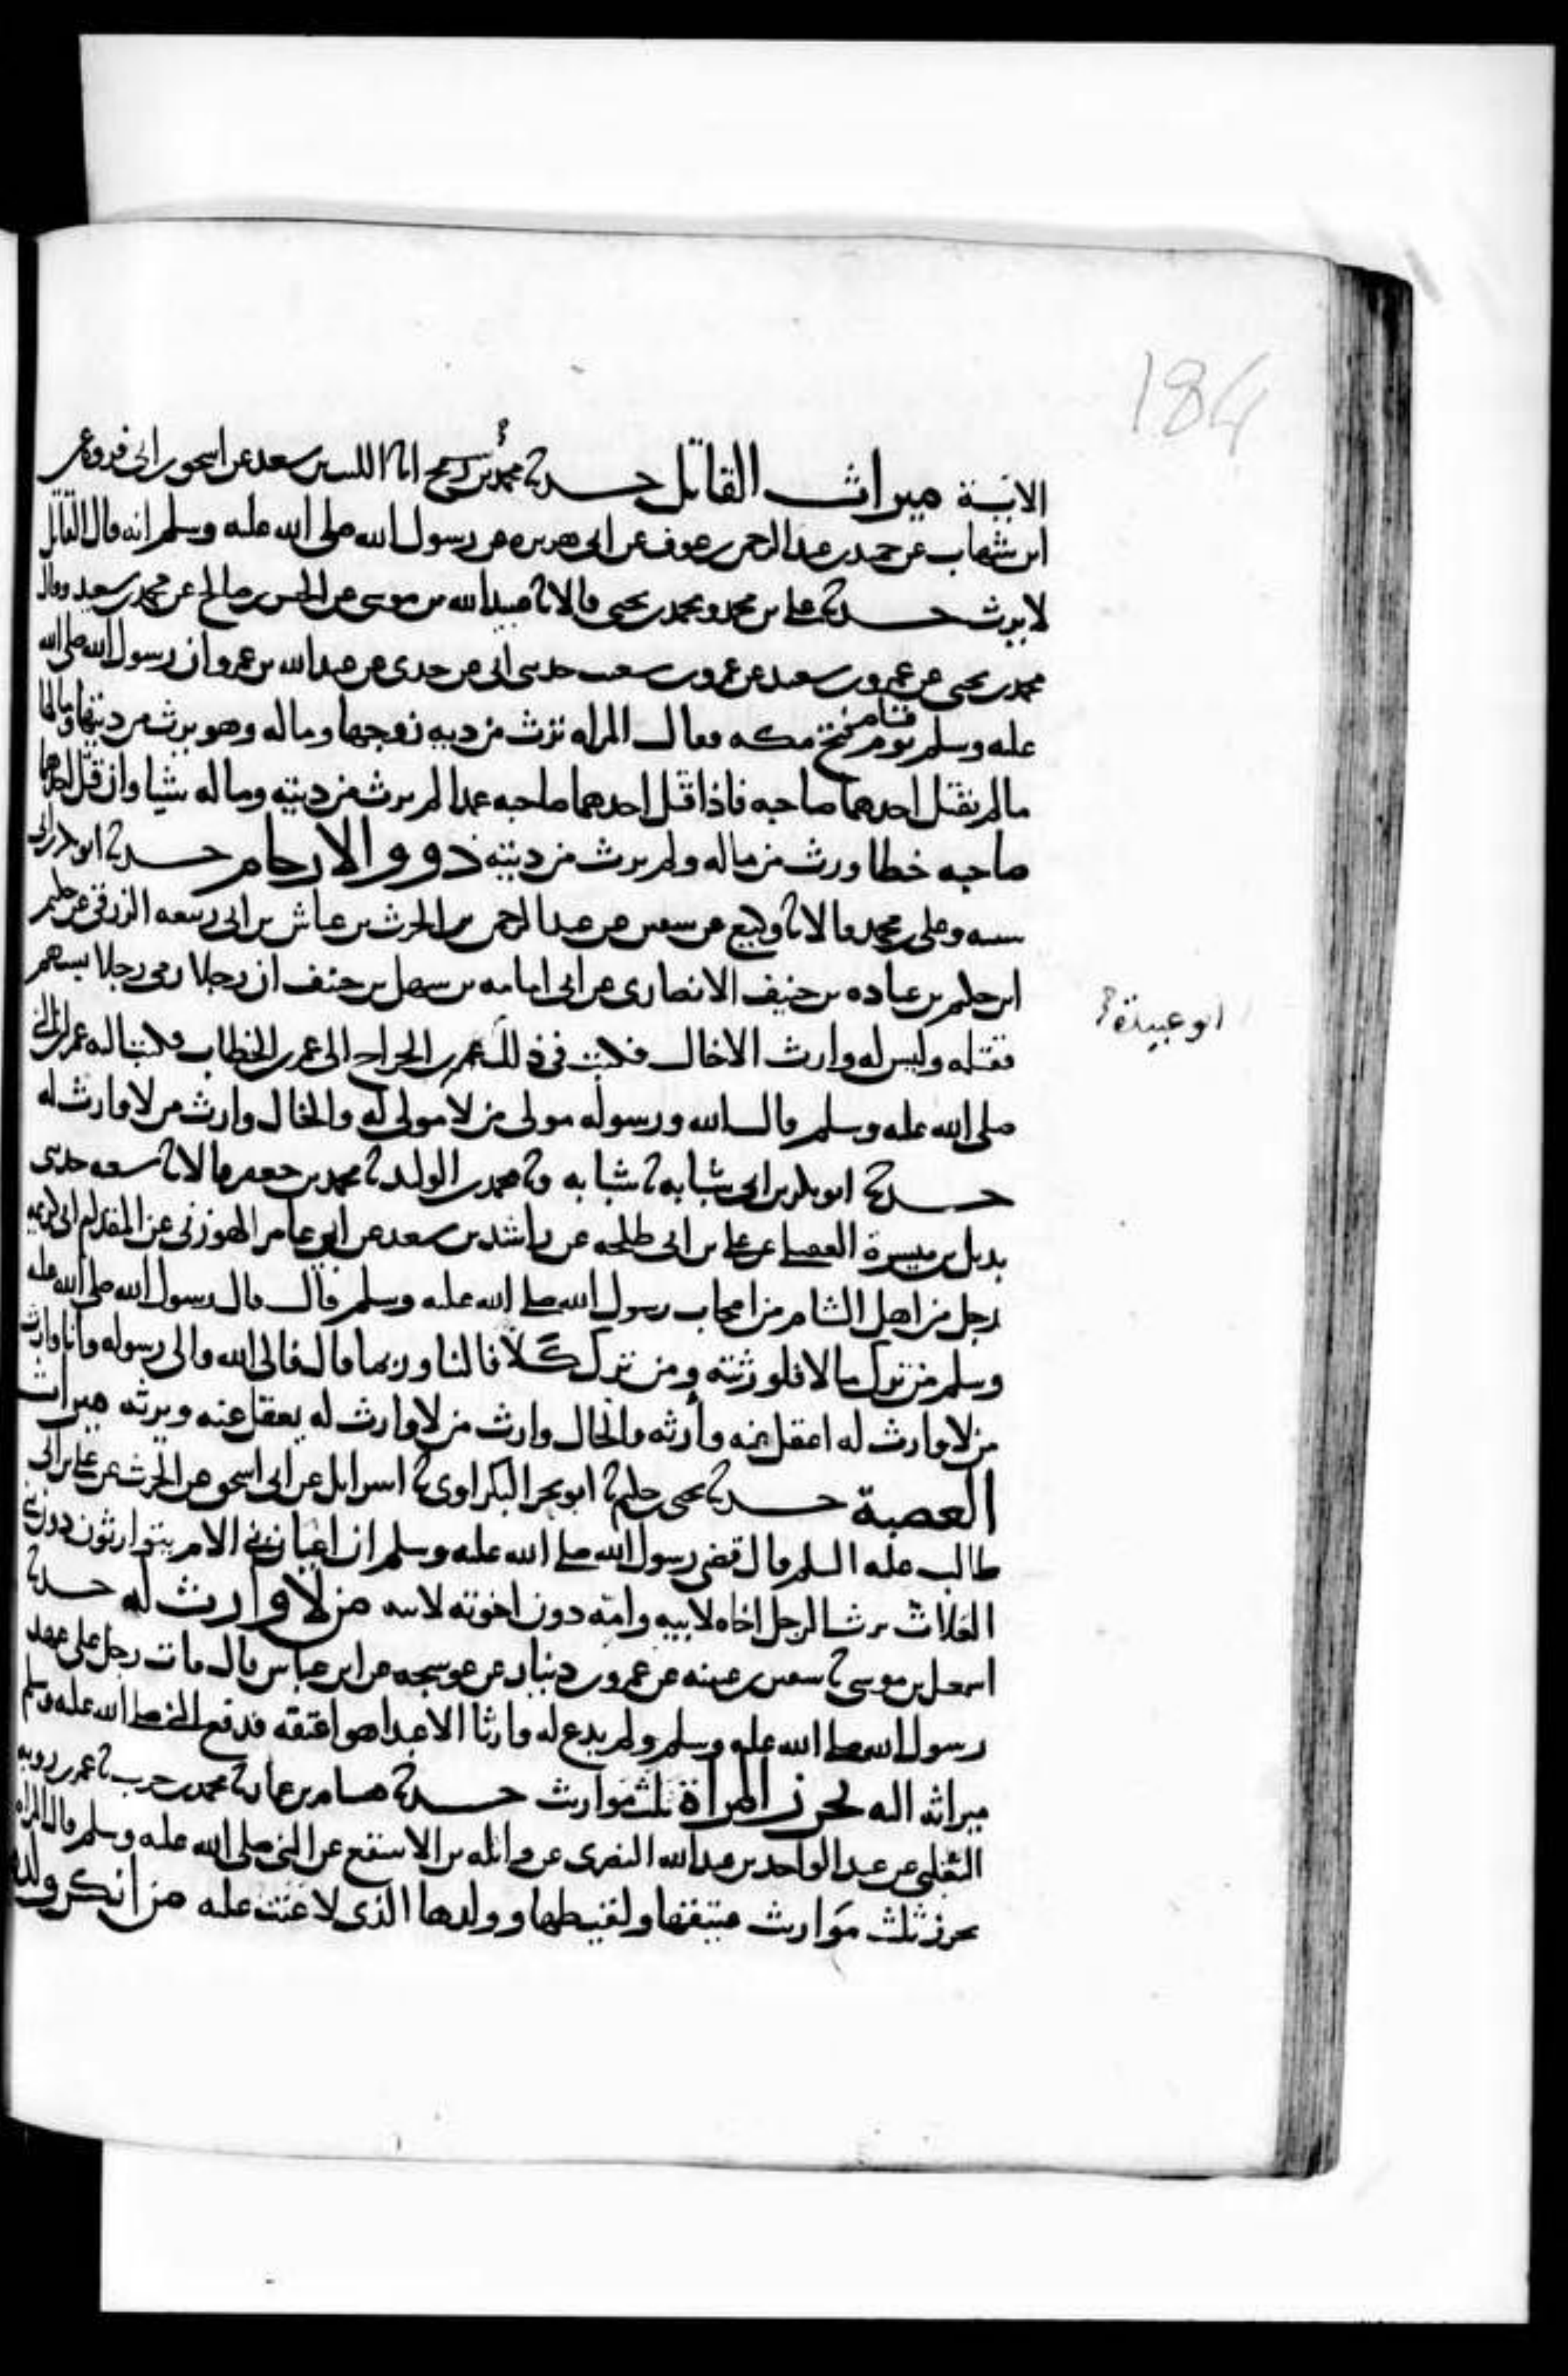 184
الاىىة ميراث القاتل حدثنا محمد بن رمح انا الليث بن سعد عن اسحق بن ابي فروة عن
ابن شهاب عن حميد بن عبد الرحمن بن عوف عن ابي هريره عن رسول الله صلى الله عليه وسلم انه قال القاتل
لا يرث حدثنا علي بن محمد ومحمد بن يحيى قالا نا عبيد الله بن موسى عن الحسن بن صالح عن محمد بن سعيد وقال
محمد بن يحيى عن عمرو بن سعيد عن عمرو بن شعيب حدثني ابي عن جدي عن عبد الله بن عمرو ان رسول الله صلى الله
عليه وسلم قام يوم فتح مكه فقال المراه ترث من ديه زوجها وماله وهو يرث من ديتها ومالها
ما لم يقتل احدهما صاحبه فاذا قتل احدهما صاحبه عمدا لم يرث من ديته وماله شيا وان قتل احدهما
صاحبه خطا ورث من ماله ولم يرث من ديته ذوو الارحام حدثنا ابو بكر بن ابي
شيبه وعلي بن محمد قالا نا وكيع عن سفين عن عبد الرحمن بن الحرث بن عياش بن ابي ربيعه الزرقي عن حكيم
ابن حكيم بن عباده بن حنيف الانصاري عن ابي امامه بن سهل بن حنيف ان رجلا رمى رجلا بسهم
فقتله وليس له وارث الا خال فكتب في ذلك عمر بن الجراح الى عمر بن الخطاب فكتب اليه عمر ان النبي
ابو عبيدة
صلى الله عليه وسلم قال الله ورسوله مولى من لا مولى له والخال وارث من لا وارث له
حدثنا ابو بكر بن ابي شيبه نا شبابه ونا محمد بن الوليد نا محمد بن جعفر قالا نا شعبه حدثني
بديل بن ميسرة العقيلي عن علي بن ابي طلحه عن راشد بن سعد عن ابي عامر الهوزني عن المقدام ابي كريمه
رجل من اهل الشام من اصحاب رسول الله صلى الله عليه وسلم قال قال رسول الله صلى الله عليه
وسلم من ترك مالا فلورثته ومن ترك كلا فالينا وربما قال فالى الله والى رسوله وانا وارث
من لا وارث له اعقل عنه وارثه والخال وارث من لا وارث له يعقل عنه ويرثه ميراث
العصبة حدثنا يحيى بن حكيم نا ابو بحر البكراوي نا اسرائل عن ابي اسحق عن الحرث عن علي بن ابي
طالب عليه السلم قال قضى رسول الله صلى الله عليه وسلم ان اعيان بني الام يتوارثون دون بني
العلات يرث الرجل اخاه لابيه وامه دون اخوته لابيه من لا وارث له حدثنا
اسمعيل بن موسى نا سفين بن عيينه عن عمرو بن دينار عن عوسجه عن ابن عباس قال مات رجل على عهد
رسول الله صلى الله عليه وسلم ولم يدع له وارثا الا عبدا هو اعتقه فدفع النبي صلى الله عليه وسلم
ميراثه اليه تحرز المراة ثلث مواريث حدثنا هشام بن عمار نا محمد بن حرب نا عمر بن روبه
التغلبي عن عبد الواحد بن عبد الله النصري عن واثله بن الاسقع عن النبي صلى الله عليه وسلم قال المراه
تحرز ثلث مواريث عتيقها ولقيطها وولدها الذي لاعنت عليه من انكر ولده